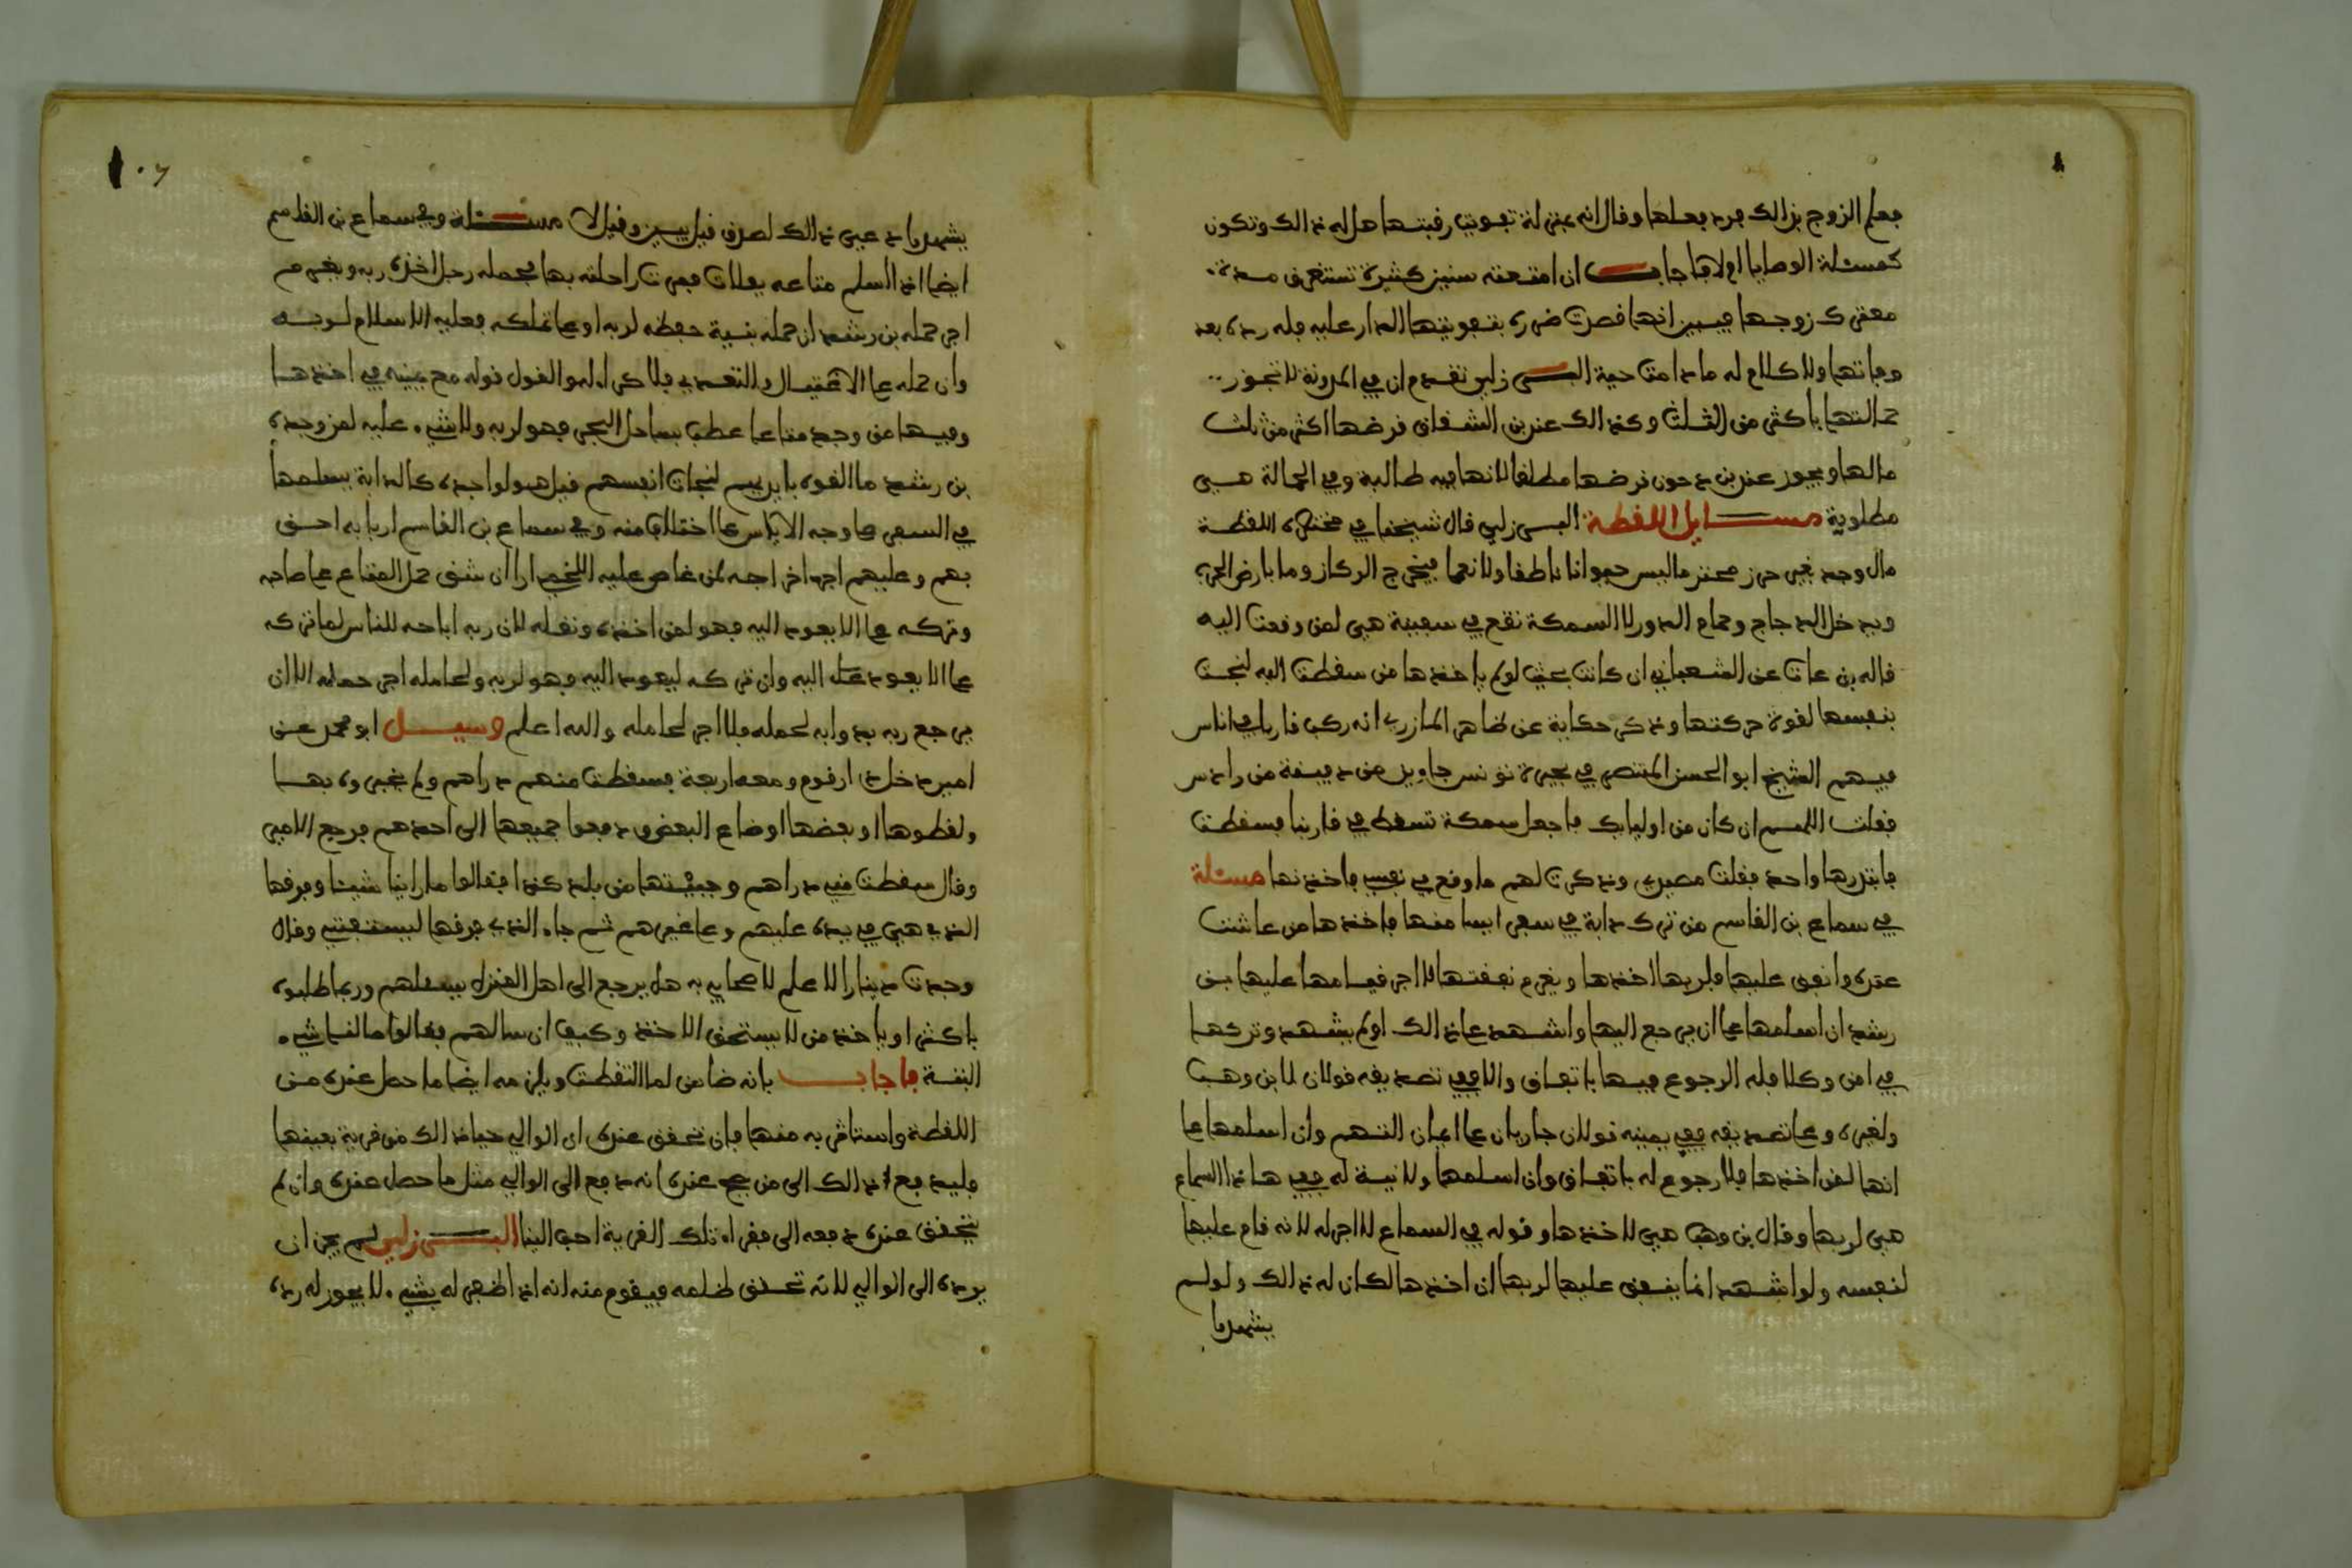 فعلم الزوج بذالك فرد فعلها وقال انه بمنزلة تفويت رقبتها هل له ذالك وتكون
كمسئلة الوصايا اولا فاجاب ان امتعته سنين كثيرة تستغرق مدة
معترك زوجها فيبين انها قصدت ضرره بتفويتها الدار عليه فله رده بعد
وفاتها ولا كلام له ما دامت حية البرزلي تقدم ان في المدونة لا تجوز
حمالتها باكثر من الثلث وكذالك عند بن الشقاق قرضها اكثر من ثلث
مالها ويجوز عند بن دحون قرضها مطلقا لانها فيه طالبة وفي الحمالة هي
مطلوبة مسايل اللقطة البرزلي قال شيخنا في مختصره اللقطة
مال وجد بغير حرز محترما ليس حيوانا ناطقا ولا نعما فيخرج الركاز وما بارض الحرب
ويدخل الدجاج وحمام الدور لا السمكة تقع في سفينة هي لمن وقعت اليه
قاله بن عات عن الشعباني ان كانت بحيث لو لم ياخذها من سقطت اليه لنجت
بنفسها لقوة حركتها وذكر حكاية عن طاهر المازري انه ركب قاربا في اناس
فيهم الشيخ ابو الحسن المنتصر في بحيرة تونس جاويز من دقيقة من رادس
فقلت اللهم ان كان من اوليايك فاجعل سمكة تسقط في قاربنا فسقطت
فابتدرها واحد فقلت مصيري وذكرت لهم ما وقع في نفسي فاخذتها مسئلة
في سماع بن القاسم من ترك دابة في سفر ايسا منها فاخذها من عاشت
عنده وانفق عليها فلربها اخذها ويغرم نفقتها لا اجر قيامها عليها بن
رشد ان اسلمها على ان يرجع اليها واشهد على ذالك او لم يشهد وتركها
في امن وكلا فله الرجوع فيها باتفاق والا ففي تصديقه قولان لابن وهب
ولغيره وعلى تصديقه ففي يمينه قولان جاريان على ايمان التهم وان اسلمها على
انها لمن اخذها فلا رجوع له باتفاق وان اسلمها ولا نية له ففي هاذا السماع
هي لربها وقال بن وهب هي لاخذها وقوله في السماع لا اجر له لانه قام عليها
لنفسه ولو اشهد انما ينفق عليها لربها ان اخذها لكان له ذالك ولو لم
يشهد ما
يشهد ما دعي ذالك لصدق قيل بيمين وقيل لا مسئلة وفي سماع بن القاسم
ايضا اذا اسلم متاعه بفلات فمرت راحلته بها فحمله رجل اخذه ربه ويغرم
اجر حمله بن رشد ان حمله بنية حفظه لربه او على تملكه فعليه الاسلام لربه
وان حمله على الاغتيال والتعدي فلا كراء له والقول قوله مع يمينه في اخذها
وفيها من وجد متاعا عطب بساحل البحر فهو لربه ولا شيء عليه لمن وجده
بن رشد ما القوه بايديهم لنجات انفسهم قيل هو لواجده كالدابة يسلمها
في السفر على وجه الاياس على اختلاف منه وفي سماع بن القاسم اربابه احق
بهم وعليهم اجر اخراجه لمن غاص عليه اللخمي ارا ان شق حمل المتاع على صاحبه
وتركه على الا يعود اليه فهو لمن اخذه ونقله لان ربه اباحه للناس لما تركه
على الا يعود اليه وان تركه ليعود اليه فهو لربه ولحامله اجر حمله الا ان
يرجع ربه بدوابه لحمله فلا اجر لحامله والله اعلم وسيل ابو محمد عن
امير دخل دار قوم ومعه اربعة فسقطت منهم دراهم ولم يخبروه بها
ولقطوها او بعضها اوضاع البعض ودفعوا جميعها الى احدهم فرجع الامير
وقال سقطت مني دراهم وجبيتها من بلد كذا فقالوا ما راينا شيئا وفرقها
الذي هي في يده عليهم وعلى غيرهم ثم جاء الذي فرقها ليستفتي وقال
وجدت دينارا لا علم لاصحابي به هل يرجع الى اهل المنزل يسئلهم وربما طلبوه
باكثر او ياخذ من لا يستحق الاخذ وكيف ان سالهم فقالوا ما لنا شيء
البتة فاجاب بانه ضامن لما التقطت ويلزمه ايضا ما حصل عنده من
اللقطة واستاثر به منها فان تحقق عنده ان الوالي جبا ذالك من قرية بعينها
فليدفع ذالك الى من صح عنده انه دفع الى الوالي مثل ما حصل عنده وان لم
يتحقق عنده دفعه الى فقراء تلك القرية احب الينا البرزلي لم يجز ان
يرده الى الوالي لانه تحقق ظلمه فيقوم منه انه اذا ظهر له بشيء لا يجوز له رده